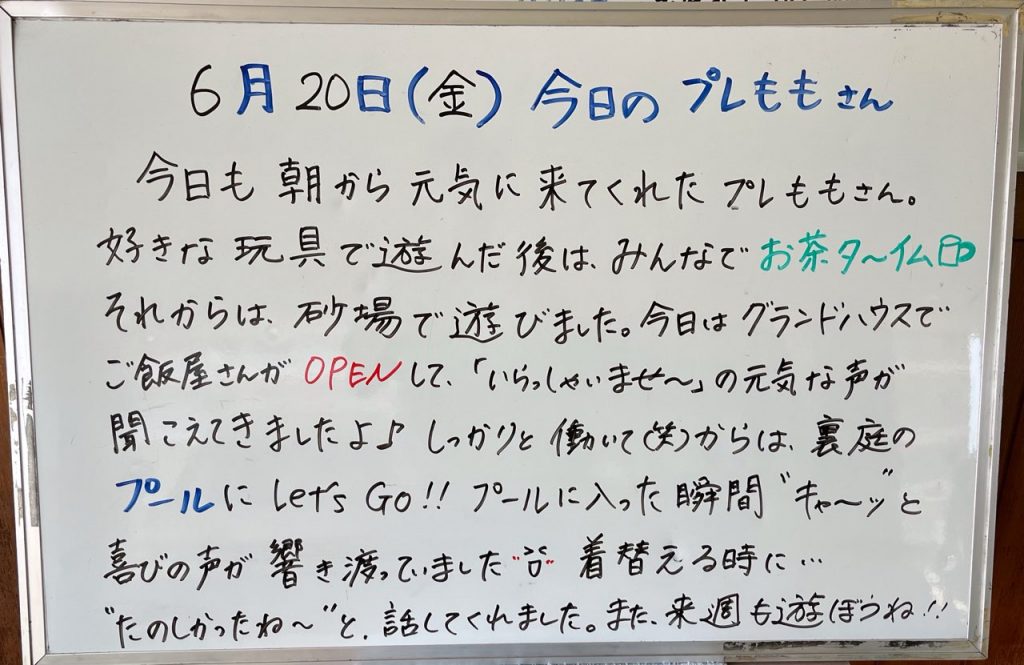 6月20日(金) 今日の プレももさん
今日も 朝から 元気に 来てくれた プレももさん。
好きな 玩具で遊んだ後は、みんなで お茶タ〜イム
それからは、砂場で遊びました。今日は グランドハウスで
ご飯屋さんが OPENして、「いらっしゃいませ〜」の元気な声が
聞こえてきましたよ♪ しっかりと 働いて(笑)からは、裏庭の
プールに Let's Go!! プールに入った瞬間 "キャ〜ッ"と
喜びの声が 響き渡っていました 着替える時に…
"たのしかったね〜"と、話してくれました。また、来週も遊ぼうね!!